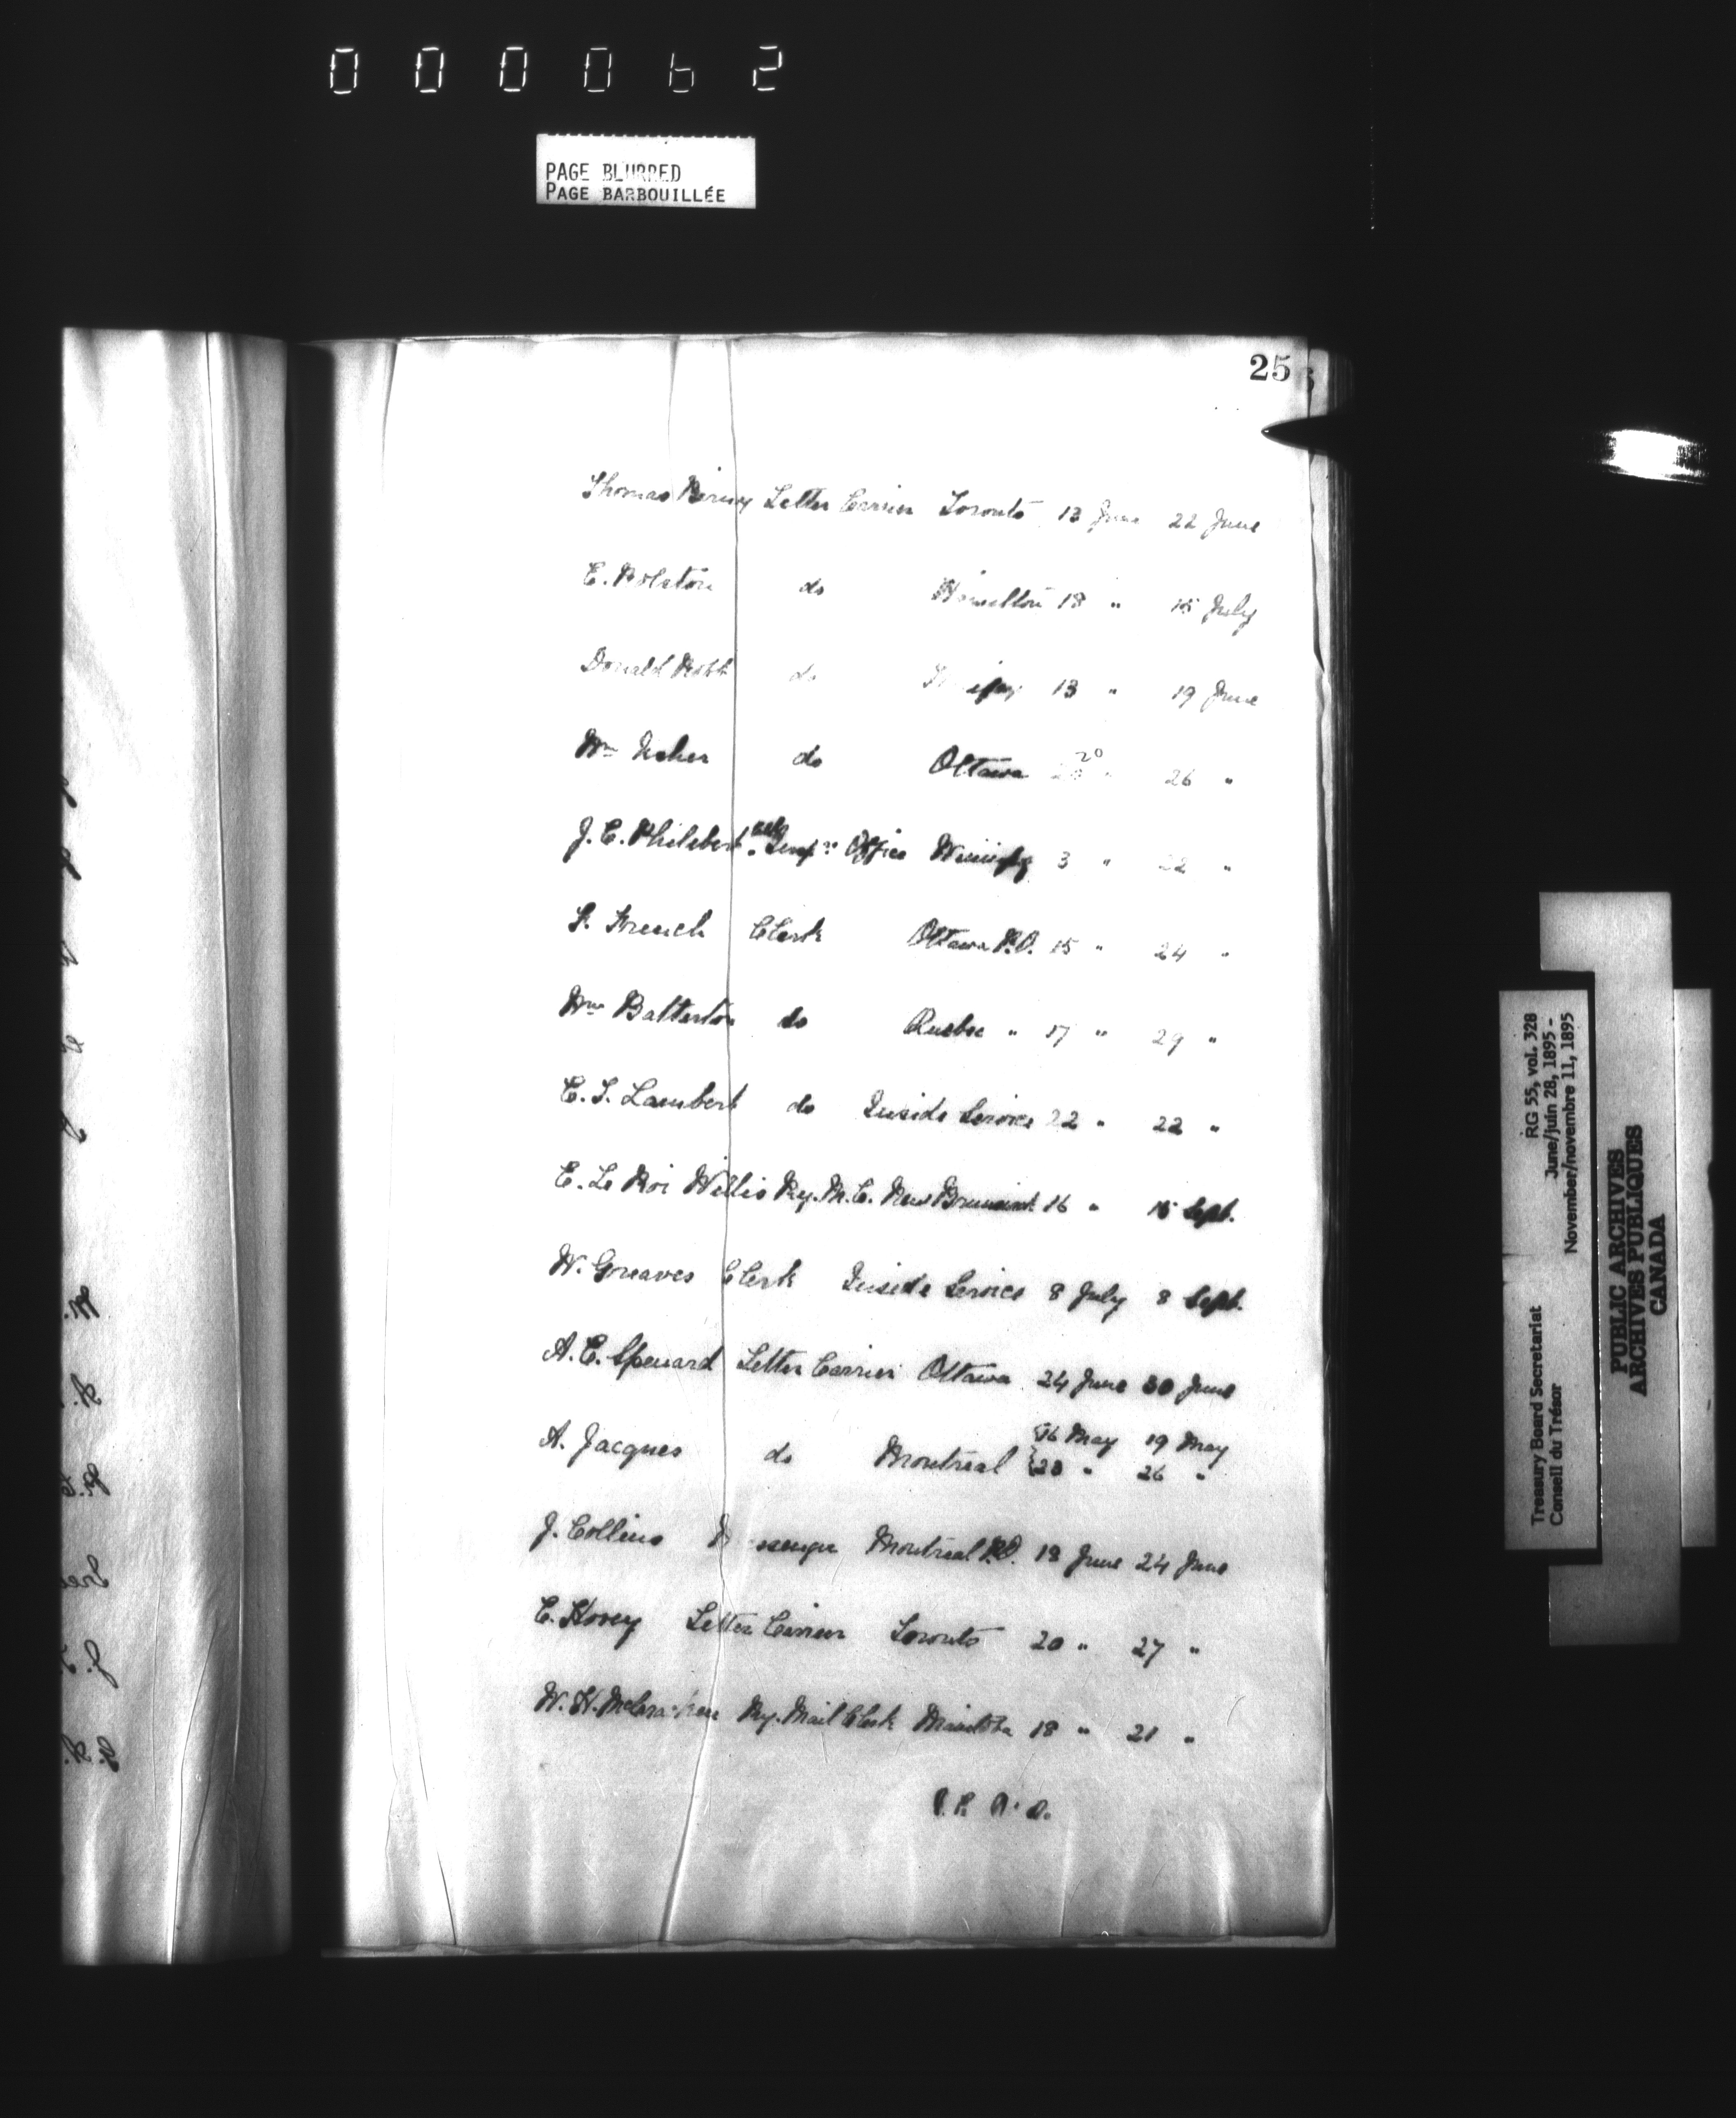 000062
PAGE BLURRED
PAGE BARBOUILLÉE
25
Thomas Letter Carrier Toronto 13 June 22 June
E. Rolston do Hamilton 18 " 15 July
Donald Robb do 13 " 19 June
Wm Usher do Ottawa 20 " 26 "
J. E. Philebert Office Winnipeg 3 " 22 "
F. French Clerk Ottawa P.O. 15 " 24 "
Wm Batterton do Quebec " 17 " 29 "
E. T. Lambert do Inside Service 22 " 22 "
E. Le Roi Willis Ry. M. C. New Brunswick 16 " 15 Sept.
W. Greaves Clerk Inside Service 8 July 8 Sept.
A. E. Spenard Letter Carrier Ottawa 24 June 30 June
A. Jacques do Montreal {16 May 19 May
{23 " 26 "
J. Collins Montreal P.O. 18 June 24 June
C. Hovey Letter Carrier Toronto 20 " 27 "
W. H. McCracken Ry. Mail Clerk Manitoba 18 " 21 "
Treasury Board Secretariat RG 55, vol. 328
Conseil du Trésor June/juin 28, 1895 -
November/novembre 11, 1895
PUBLIC ARCHIVES
ARCHIVES PUBLIQUES
CANADA